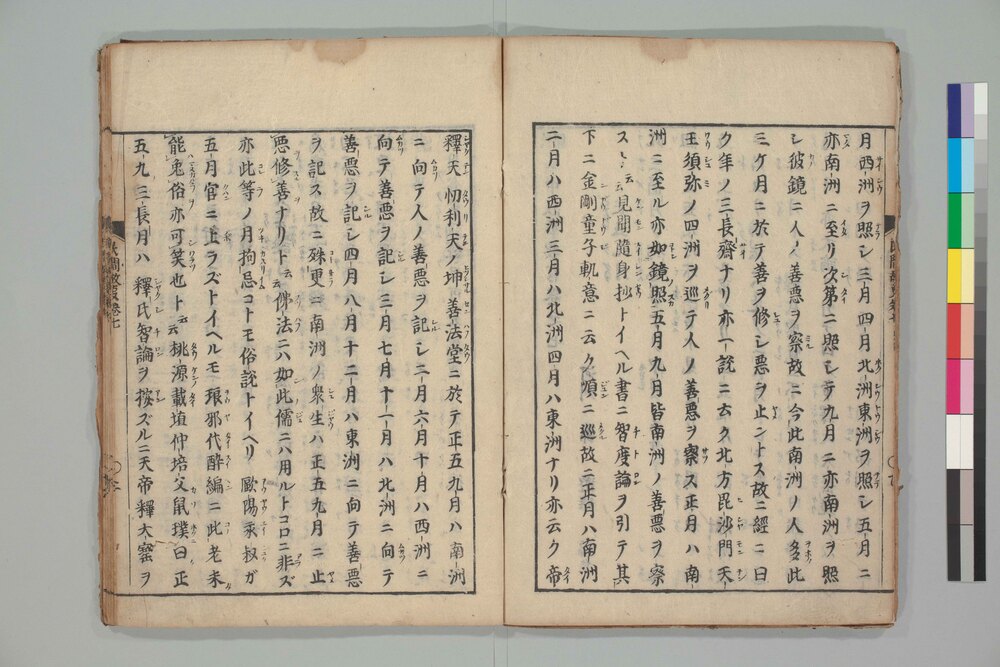 月西洲ヲ照シ三月四月北洲東洲ヲ照シ五月ニ
亦南洲ニ至リ次第ニ照シテ九月ニ亦南洲ヲ照
シ彼鏡ニ人ノ善悪ヲ察故ニ今此南洲ノ人多此
三ケ月ニ於テ善ヲ修シ悪ヲ止ントス故ニ經ニ曰
ク年ノ三長齊ナリ亦一説ニ云ク北方毘沙門天
王須弥ノ四洲ヲ巡テ人ノ善悪ヲ察ス正月ハ南
洲ニ至ル亦如鏡照五月九月皆南洲ノ善悪ヲ察
スト云云見聞隨身抄トイヘル書ニ智度論ヲ引テ其
下ニ金剛童子軌意ニ云ク順ニ巡故ニ正月ハ南洲
二月ハ西洲三月ハ北洲四月ハ東洲ナリ亦云ク帝
釋天忉利天ノ坤善法堂ニ於テ正五九月ハ南洲
ニ向テ人ノ善悪ヲ記シ二月六月十月ハ西洲ニ
向テ善悪ヲ記シ三月七月十一月ハ北洲ニ向テ
善悪ヲ記シ四月八月十二月ハ東洲ニ向テ善悪
ヲ記ス故ニ殊更ニ南洲ノ衆生ハ正五九月ニ止
悪修善ナリト云云佛法ニハ如此儒ニハ用ルトコロニ非ズ
亦此等ノ月拘忌コトモ俗説トイヘリ歐陽永叔ガ
五月官ニ上ラズトイヘルモ琅邪代醉編ニ此老未
能免俗亦可笑也ト云云桃源戴埴仲培父鼠璞曰正
五九三長月ハ釋氏智論ヲ按ズルニ天帝釋大寳ヲ
民間故叓卷七